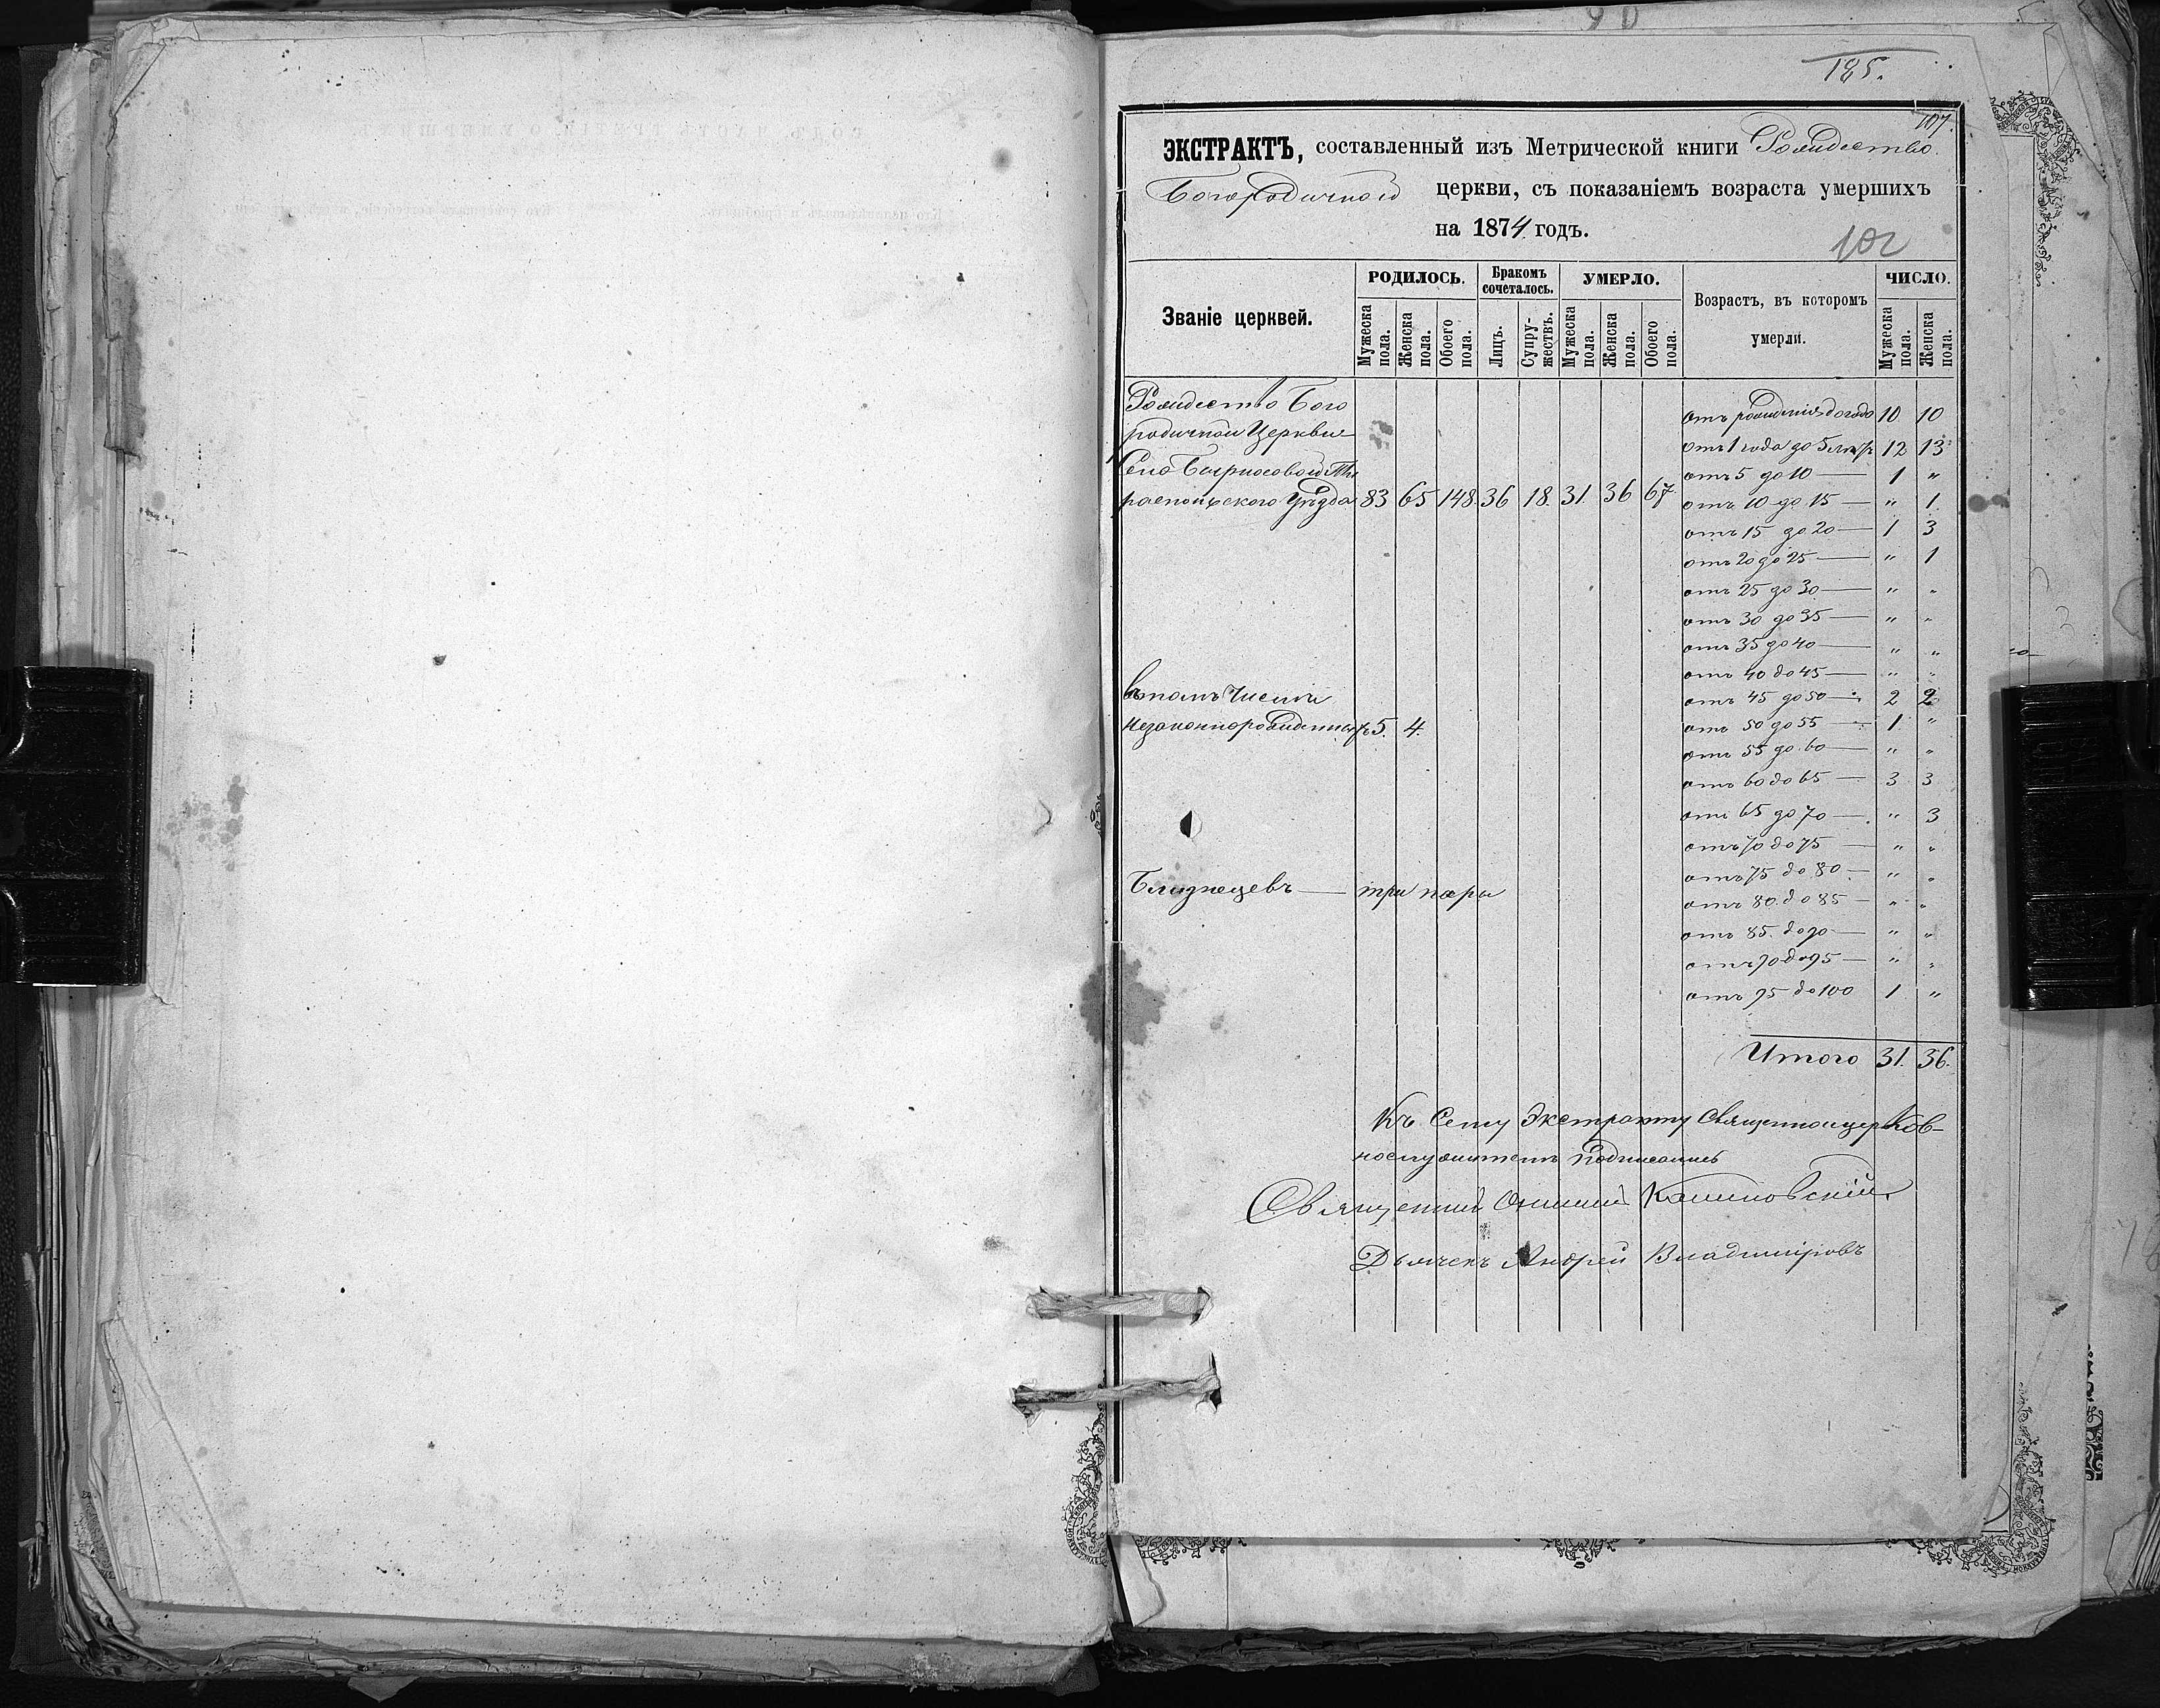 185.
107.
ЭКСТРАКТЪ, составленный изъ Метрической книги Рождество
Богородичной церкви, съ показаніемъ возраста умершихъ
на 1874 годъ.
102
Званіе церквей.
РОДИЛОСЬ.
Бракомъ сочеталось.
УМЕРЛО.
Возрастъ, въ которомъ умерли.
ЧИСЛО.
Мужеска пола.
Женска пола.
Обоего пола.
Лицъ.
Супружествъ.
Мужеска пола.
Женска пола.
Обоего пола.
Мужеска пола.
Женска пола.
Рождество Бого
родичной Церкви
Села Ти
распольскаго Уѣзда 83 65 148. 36 18. 31. 36 67.
въ томъ числѣ
незаконнорожденныхъ 5. 4.
Близнецевъ — три пары
отъ рожденія до года 10 10
отъ 1 года до 5 лѣтъ 12 13
отъ 5 до 10 — 1 "
отъ 10 до 15 — " 1.
отъ 15 до 20 — 1 3
отъ 20 до 25 — " 1
отъ 25 до 30 — " "
отъ 30 до 35 — " "
отъ 35 до 40 — " "
отъ 40 до 45 — " "
отъ 45 до 50 — 2 2
отъ 50 до 55 — 1. "
отъ 55 до 60 — " "
отъ 60 до 65 — 3 3
отъ 65 до 70 — " 3
отъ 70 до 75 — " "
отъ 75 до 80 — " "
отъ 80 до 85 — " "
отъ 85 до 90 — " "
отъ 90 до 95 — " "
отъ 95 до 100 1 "
Итого 31. 36.
Къ Сему Экстракту Священноцерков-
нослужители подписались
Священникъ Калиновскій
Дьячекъ Андрей Владиміровъ